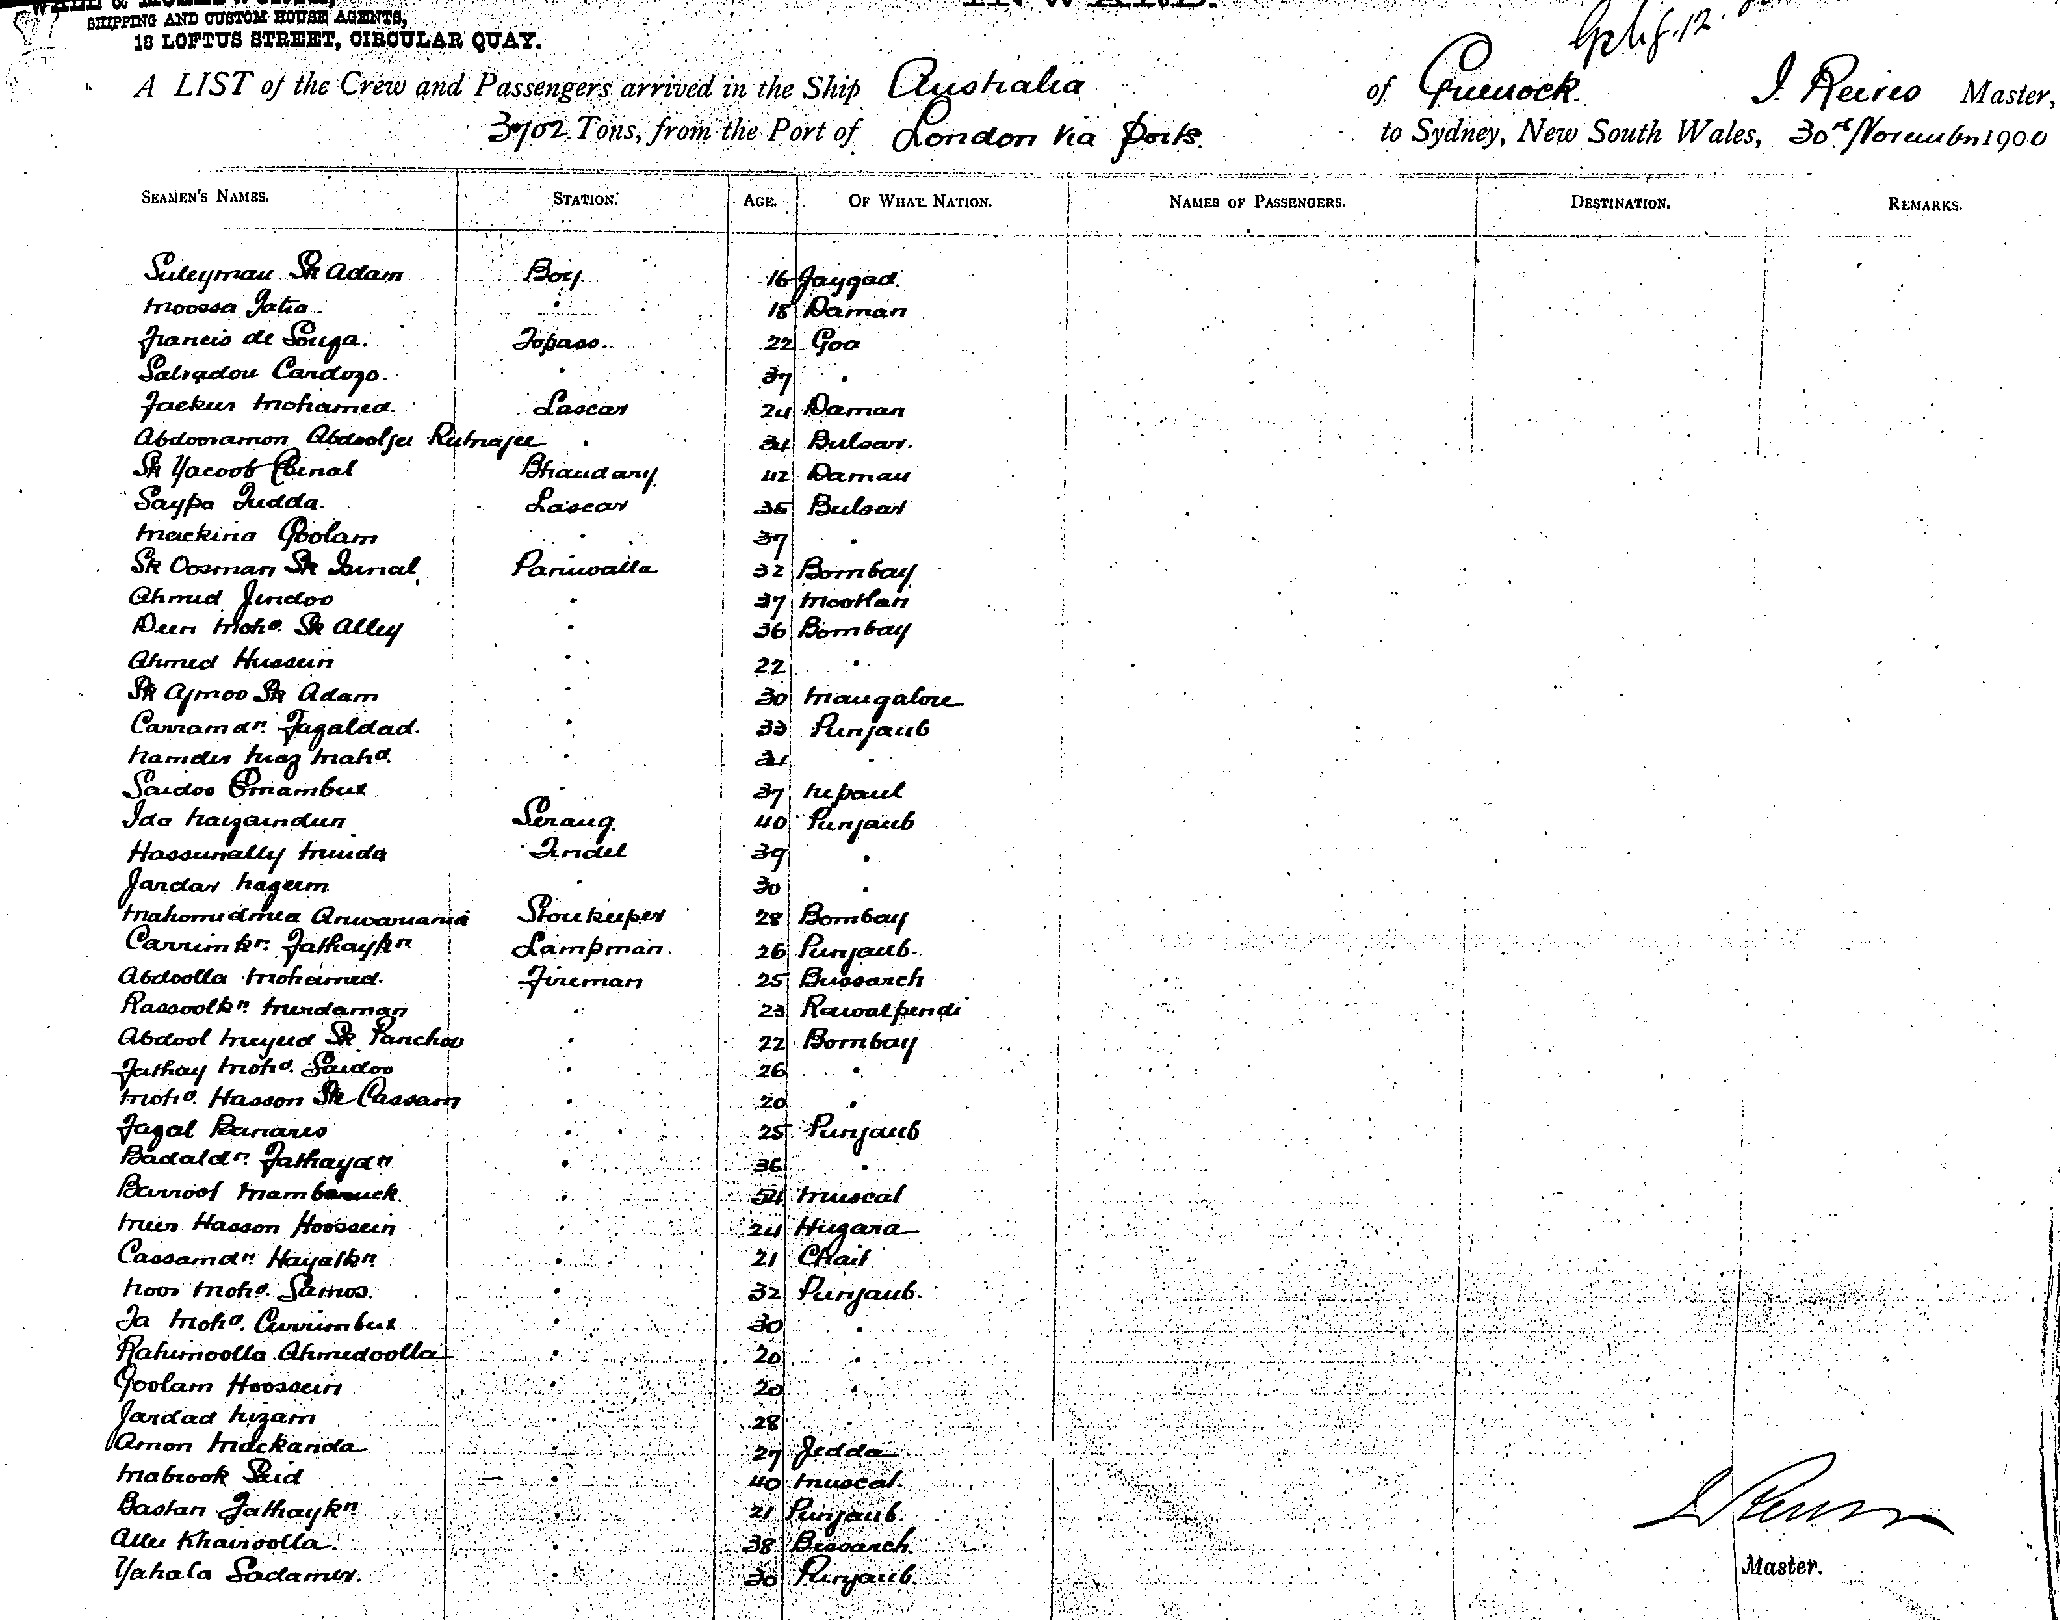 SHIPPING AND CUSTOM HOUSE AGENTS,
18 LOFTUS STREET, CIRCULAR QUAY.
A LIST of the Crew and Passengers arrived in the Ship Australia of Greenock J. Reeves Master,
3702 Tons, from the Port of London via Ports. to Sydney, New South Wales, 30th November 1900
SEAMEN'S NAMES. STATION. AGE. OF WHAT NATION. NAMES OF PASSENGERS. DESTINATION. REMARKS.
Suleyman Sk Adam Boy 16 Jaygad.
Moossa 18 Daman
Francis de Souza. Topass. 22 Goa
Salvadou Cardozo. " 37 "
Mohamed. Lascar 24 Daman
Abdooramon Abdooljee Rutnajee " Bulsar.
Sk Yacoob Ebmal Bhandary 42 Daman
Saypa Judda. Lascar 35 Bulsar
Goolam " 37 "
Sk Oosman Sk Ismal Paniwalla 32 Bombay
Ahmed Jendoo " 37 Mooltan
Deen Mohd. Sk Alley " 36 Bombay
Ahmed Hussein " 22 "
Sk Ajmoo Sk Adam " 30 Mangalore
Carramdn. Fazaldad. " 33 Punjaub
Niaz Mahd. " "
Saidoo Emambux " 37 Nepaul
Ida Naizamdeen Serang 40 Punjaub
Hassunally Tindel 39 "
Jandar Nazeem " 30 "
Storekeeper 28 Bombay
Carrimkn. Fathaykn Lampman. 26 Punjaub.
Abdoolla Mohamed. Fireman 25 Bussarch
Rassoolkn. " 23 Rawalpendi
Abdool Meyed Sk Panchoo " 22 Bombay
Fathay Mohd. Saidoo " 26 "
Mohd. Hasson Sk Cassam " 20 "
Fazal " 25 Punjaub
Badaldn. Fathaydn " 36 "
Mambaruck. " Muscat
Meer Hasson Hoossein " 24 Huzara
Cassamdn Hayatkn " 21
Noor Mohd. Samoo. " 32 Punjaub.
Mohd. Currimbux " 30 "
Rahimoolla Ahmedoolla " 20 "
Goolam Hoossein " 20 "
Jandad Nizam " 28 "
Amon Mackanda " 27 Jedda
Mabrook Said " 40 Muscat.
Bastan Fathaykn " 21 Punjaub.
Allee Khairoolla. " 38 Bussarch.
Yahala " 30 Punjaub.
J Reeves
Master.